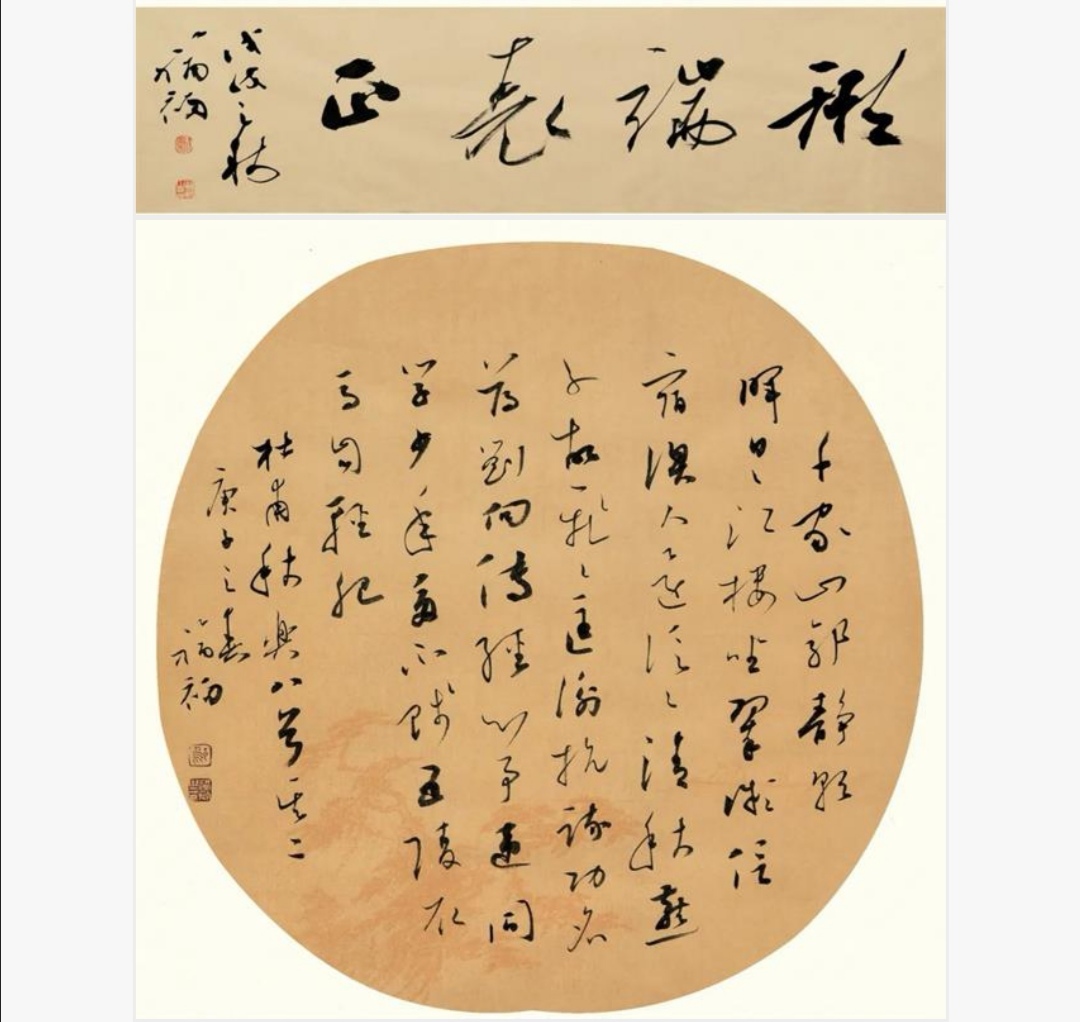 形端表正
戊戌之秋
福初
千家山郭靜朝
暉日〻江樓坐翠微信
宿漁人還泛〻清秋燕
子故飛〻匡衡抗疏功名
薄劉向傳經心事違同
學少年多不賤五陵衣
馬自輕肥
杜甫秋興八首其二
庚子之春
福初